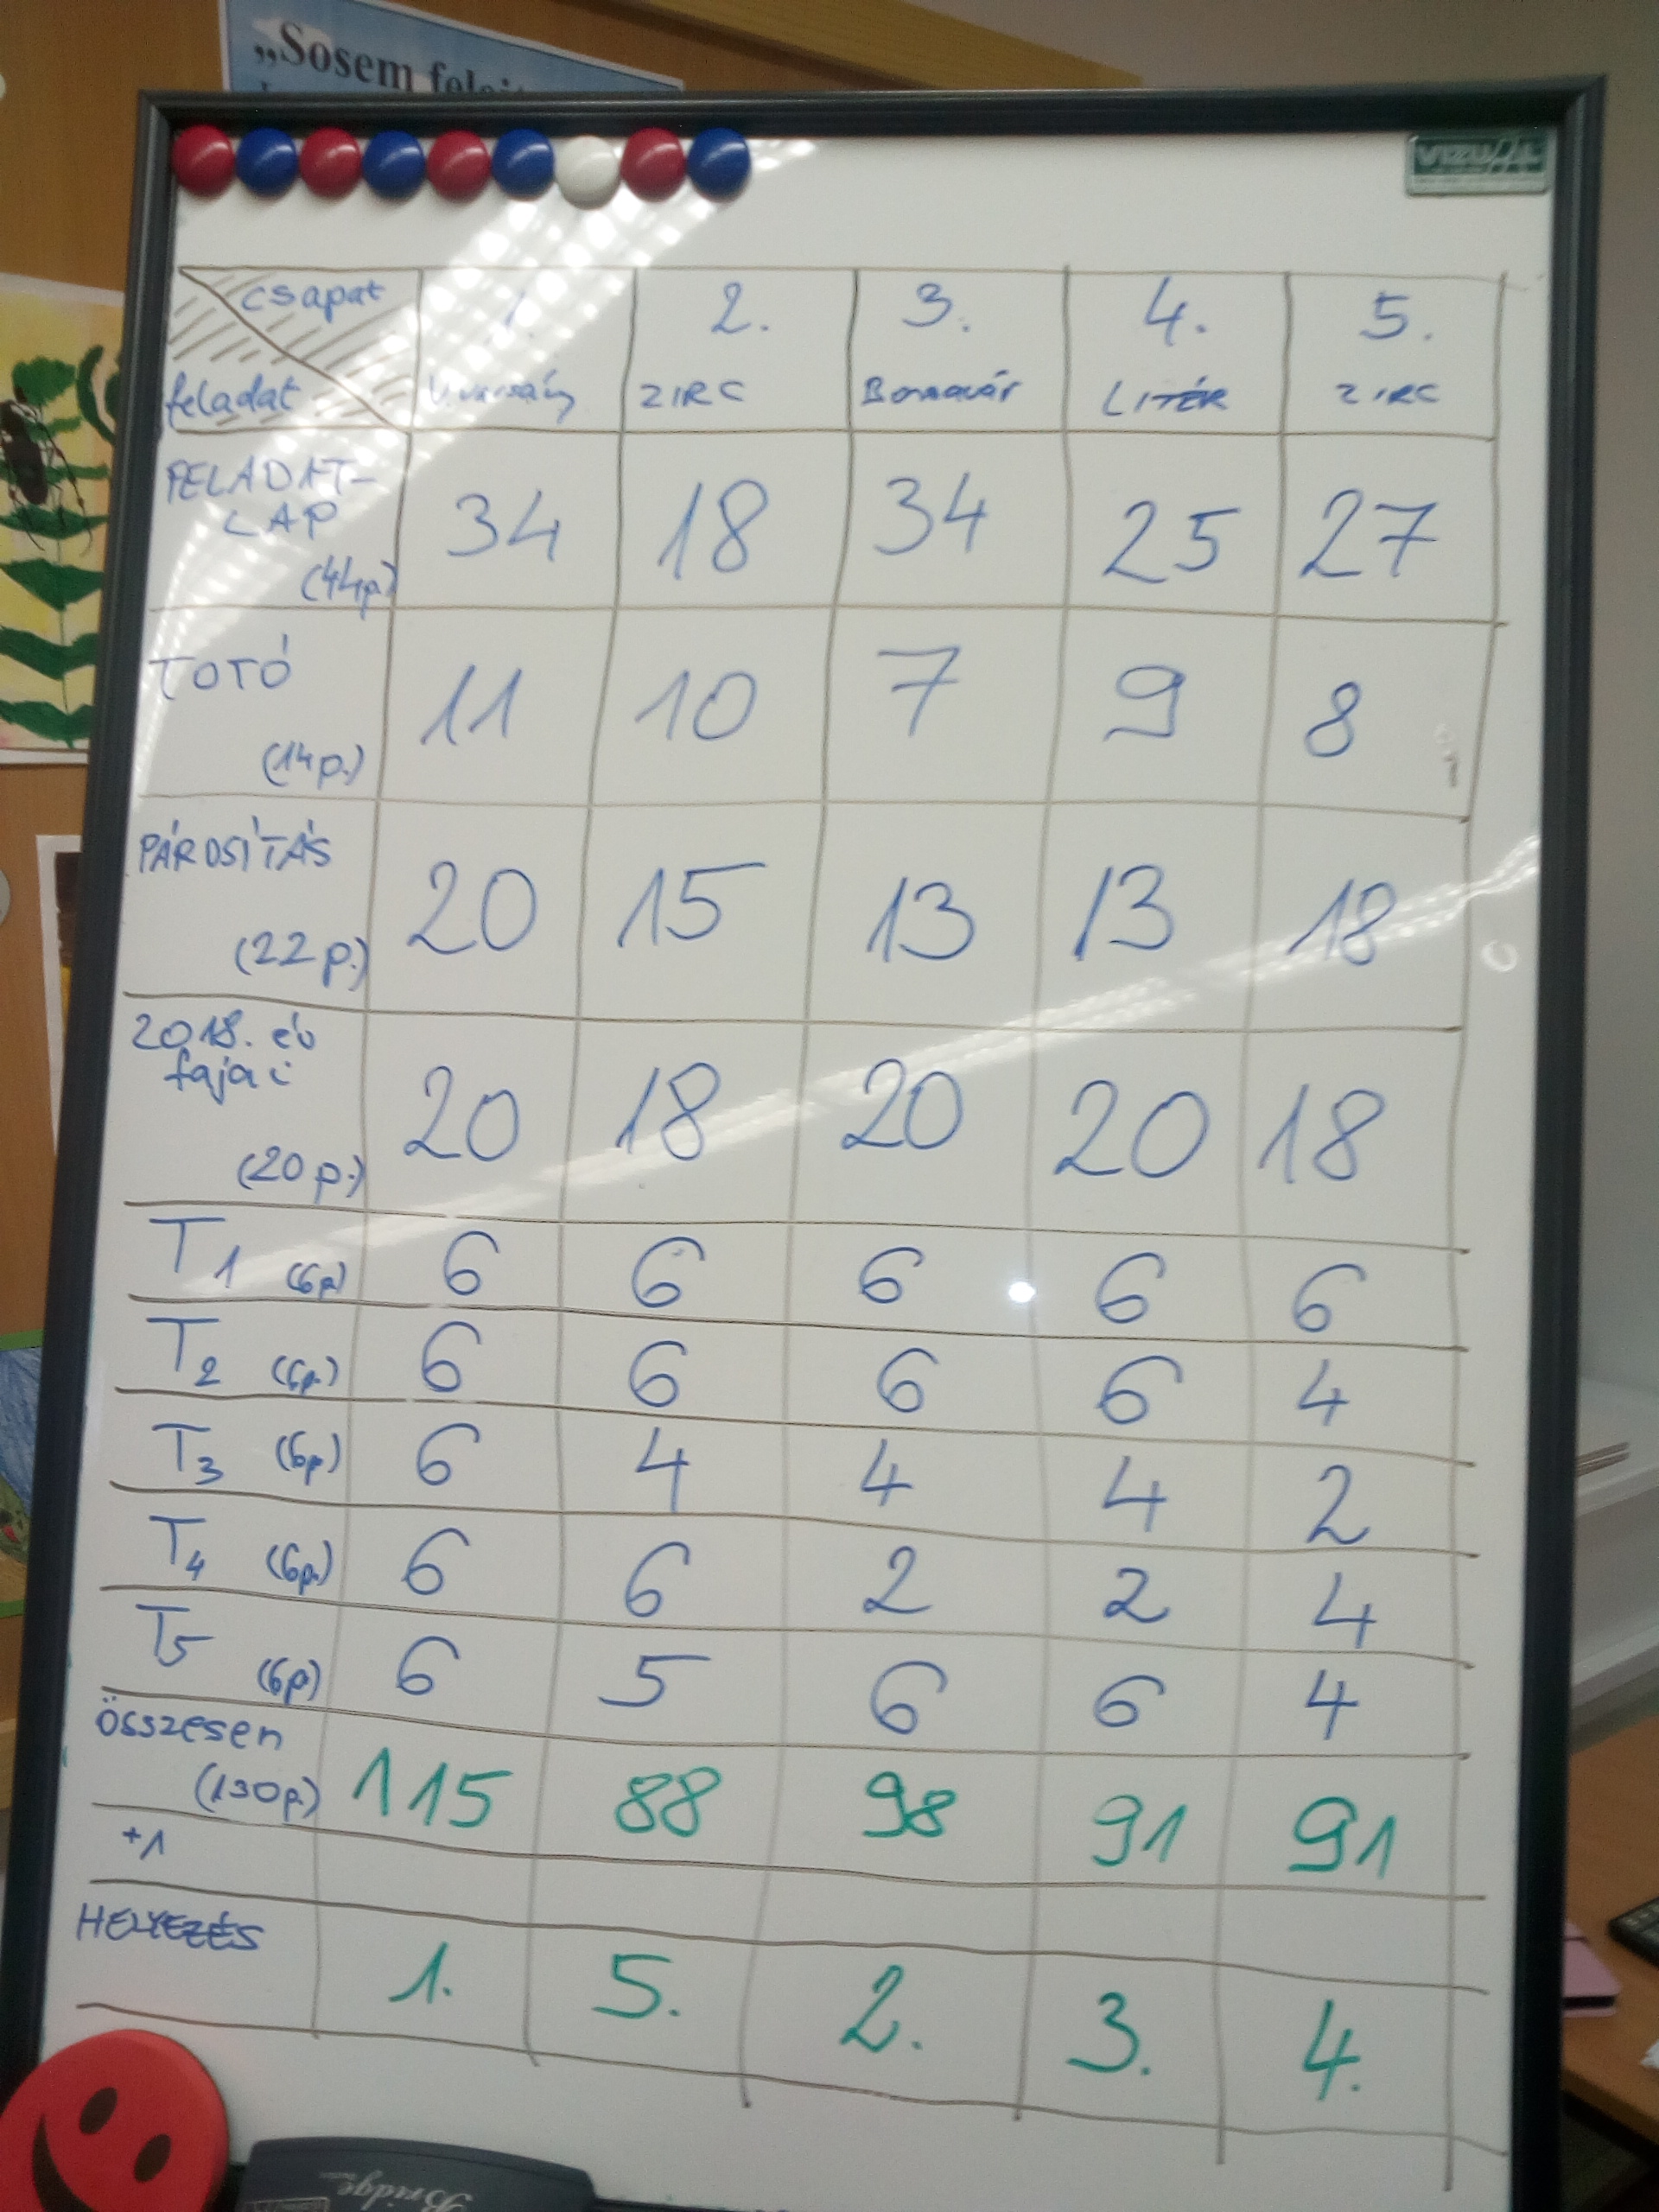 „Sosem felejt
VIZUÁL
csapat 1. 2. 3. 4. 5.
feladat ZIRC Bonavár LITÉR ZIRC
FELADAT-
LAP 34 18 34 25 27
(44p.)
TOTÓ 11 10 7 9 8
(14p.)
PÁROSÍTÁS 20 15 13 13 18
(22p.)
2018. év
fajai 20 18 20 20 18
(20p.)
T1 (6p.) 6 6 6 6 6
T2 (6p.) 6 6 6 6 4
T3 (6p.) 6 4 4 4 2
T4 (6p.) 6 6 2 2 4
T5 (6p) 6 5 6 6 4
összesen
(130p.) 115 88 98 91 91
+1
HELYEZÉS 1. 5. 2. 3. 4.
Bridge